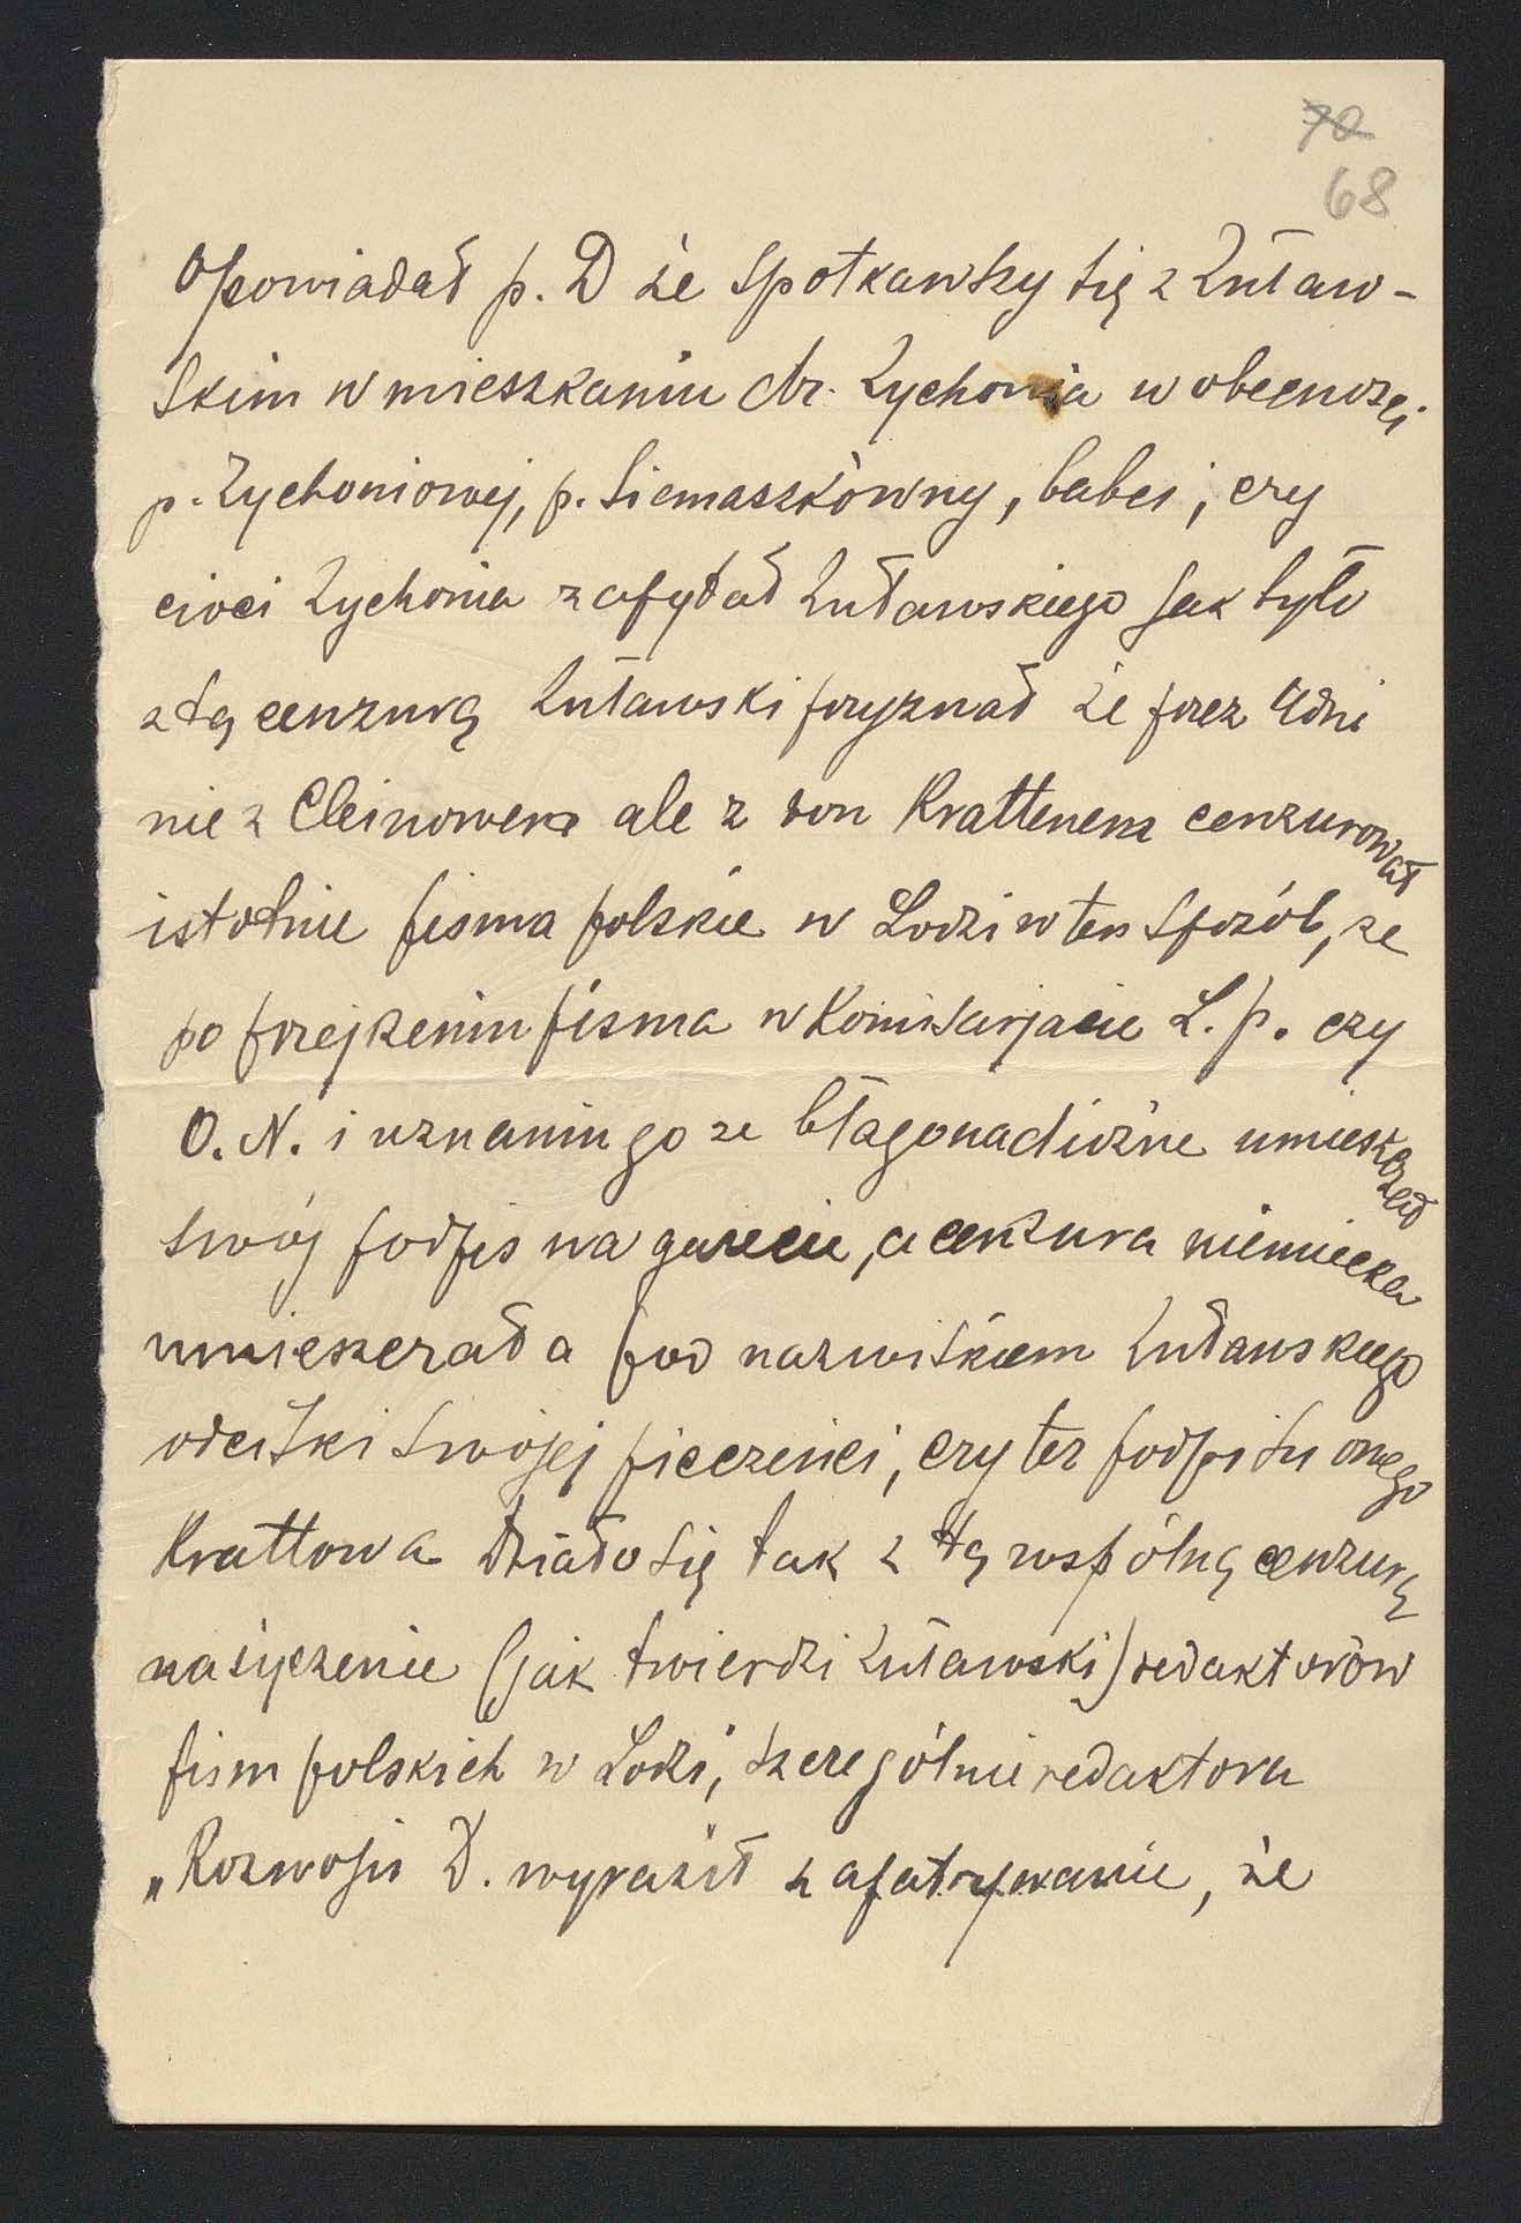 ~~70~~
68
Opowiadał p. D że spotkawszy się z Żuław-
skim w mieszkaniu dr. Żychonia w obecności
p. Żychoniowej, p. Siemaszkówny, babci, czy
cioci Żychonia zapytał Żuławskiego jak było
z tą cenzurą Żuławski przyznał że przez 4 dni
nie z Cleinowem ale z von Krattenem cenzurował
istotnie pisma polskie w Łodzi w ten sposób, że
po przejrzeniu pisma w Komisarjacie L. p. czy
O. N. i uznaniu go za błagonadiożne umieszczał
swój podpis na gazecie, a cenzura niemiecka
umieszczała pod nazwiskiem Żuławskiego
odciski swojej pieczęci, czy też podpisu onego
Krattowa Działo się tak z tą wspólną cenzurą
na życzenie (jak twierdzi Żuławski) redaktorów
pism polskich w Łodzi, szczególnie redaktora
„Rozwoju D. wyraził zapatrywanie, że